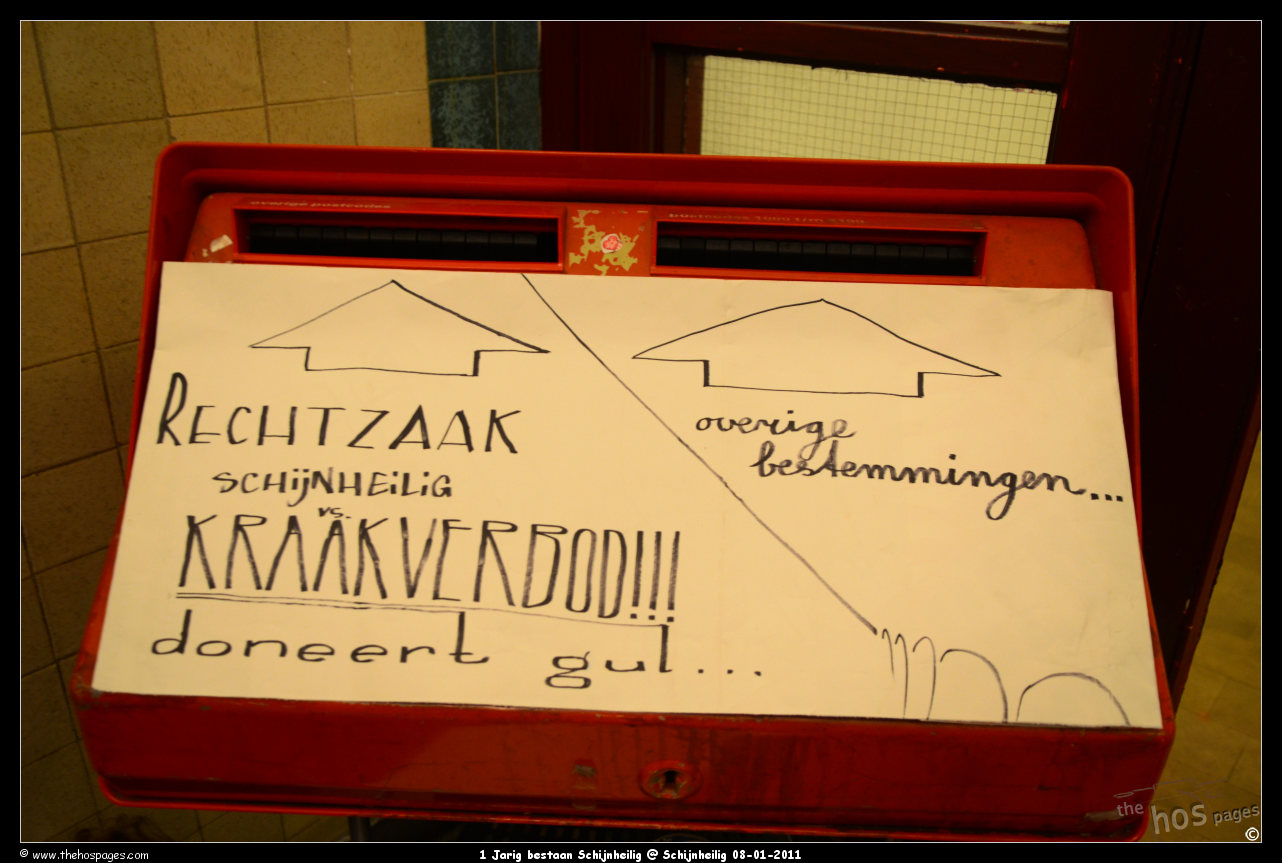 overige postcodes
postcodes 1000 t/m 1109
RECHTZAAK
SCHIJNHEILIG
vs.
KRAAKVERBOD!!!
doneert gul...
overige
bestemmingen...
the hos pages
©
© www.thehospages.com
1 Jarig bestaan Schijnheilig @ Schijnheilig 08-01-2011